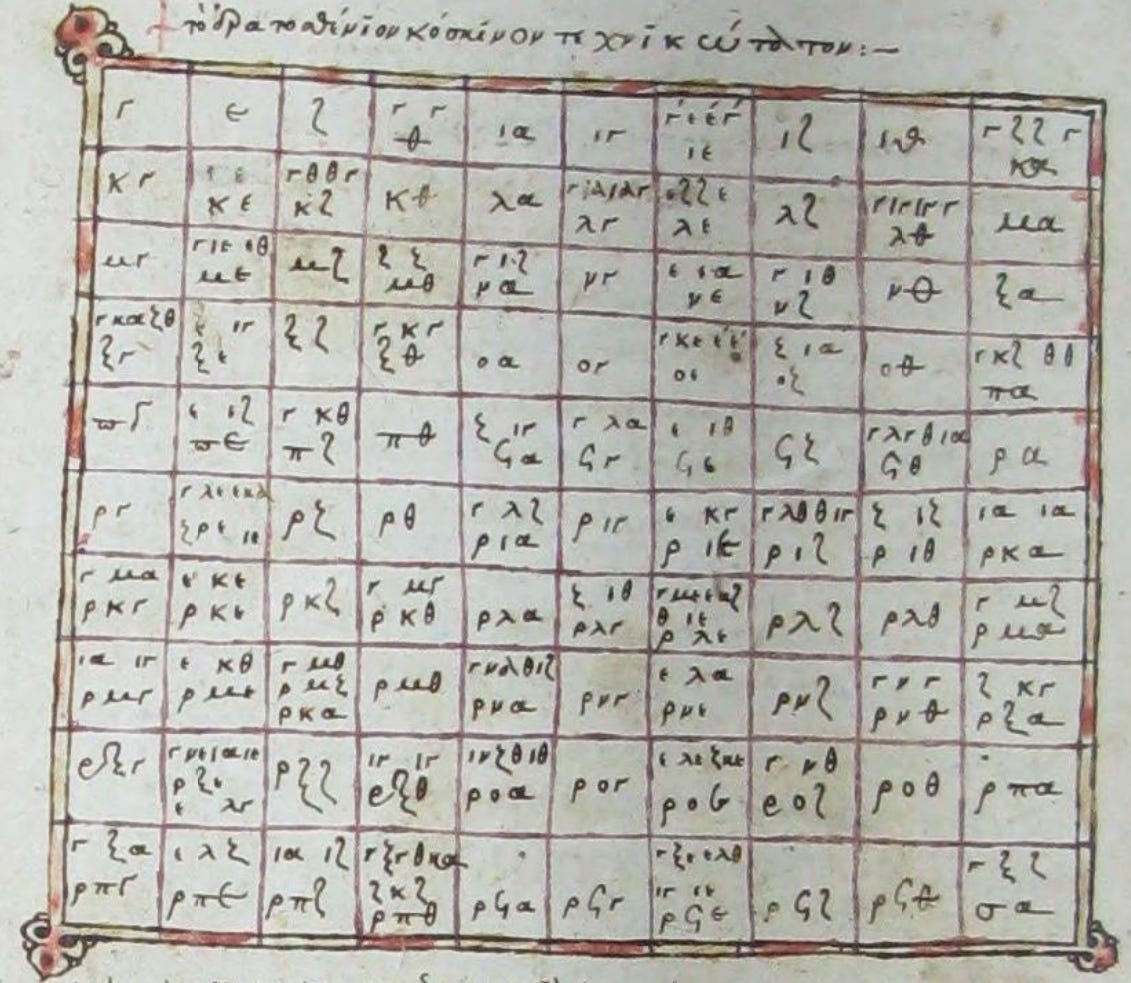 τὸ ἐρατοσθένιον κόσκινον τεχνικώτατον:—
γ γ γ ε ε γ γ ζ ζ γ
γ ε ζ θ ια ιγ ιε ιζ ιθ κα
ε ε γ θ θ γ γ ια ια γ ε ζ ζ ε γ ιγ ιγ γ
κγ κε κζ κθ λα λγ λε λζ λθ μα
γ ιε ε θ ζ ζ γ ιζ ε ια γ ιθ
μγ με μζ μθ να νγ νε νζ νθ ξα
γ κα ζ θ ε ιγ γ κγ γ κε ε ιε ζ ια γ κζ θ θ
ξγ ξε ξζ ξθ οα ογ οε οζ οθ πα
ε ιζ γ κθ ζ ιγ γ λα ε ιθ γ λγ θ ια
πγ πε πζ πθ ϟα ϟγ ϟε ϟζ ϟθ ρα
γ λε ε κα γ λζ ε κγ γ λθ θ ιγ ζ ιζ ια ια
ργ ζ ρε ιε ρζ ρθ ρια ριγ ριε ριζ ριθ ρκα
γ μα ε κε γ μγ ζ ιθ γ με ε κζ γ μζ
θ ιε
ρκγ ρκε ρκζ ρκθ ρλα ρλγ ρλε ρλζ ρλθ ρμα
ια ιγ ε κθ γ μθ γ να θ ιζ ε λα γ νγ ζ κγ
ρμγ ρμε ρμζ ρμθ ρνα ρνγ ρνε ρνζ ρνθ ρξα
ρκα
γ νε ια ιε ιγ ιγ γ νζ θ ιθ ε λε ζ κε γ νθ
ρξγ ρξε ρξζ ρξθ ροα ρογ ροε ροζ ροθ ρπα
ε λγ
γ ξα ε λζ ια ιζ γ ξγ θ κα γ ξε ε λθ γ ξζ
ζ κζ ιγ ιε
ρπγ ρπε ρπζ ρπθ ρϟα ρϟγ ρϟε ρϟζ ρϟθ σα